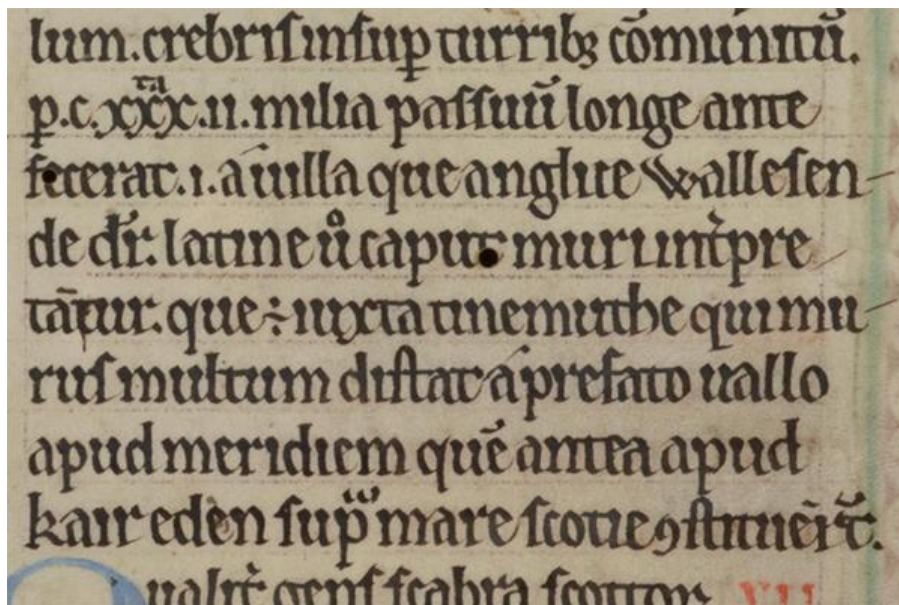 lum. crebris insuꝑ turribꝫ cōmunitū.
ꝑ.c.xxͭͣx.ii. milia passuū longe ante
fecerat .i. a uilla que anglice wallesen-
de dr̄. latine ů caput muri int̉pre
tātur. que ÷ iuxta tinemuthe qui mu-
rus multum distat a prefato uallo
apud meridiem quē antea apud
kair eden sup̷ᷓ mare scotie ꝯstituer̄t.
Qualit̉ gens scabra scottor XII